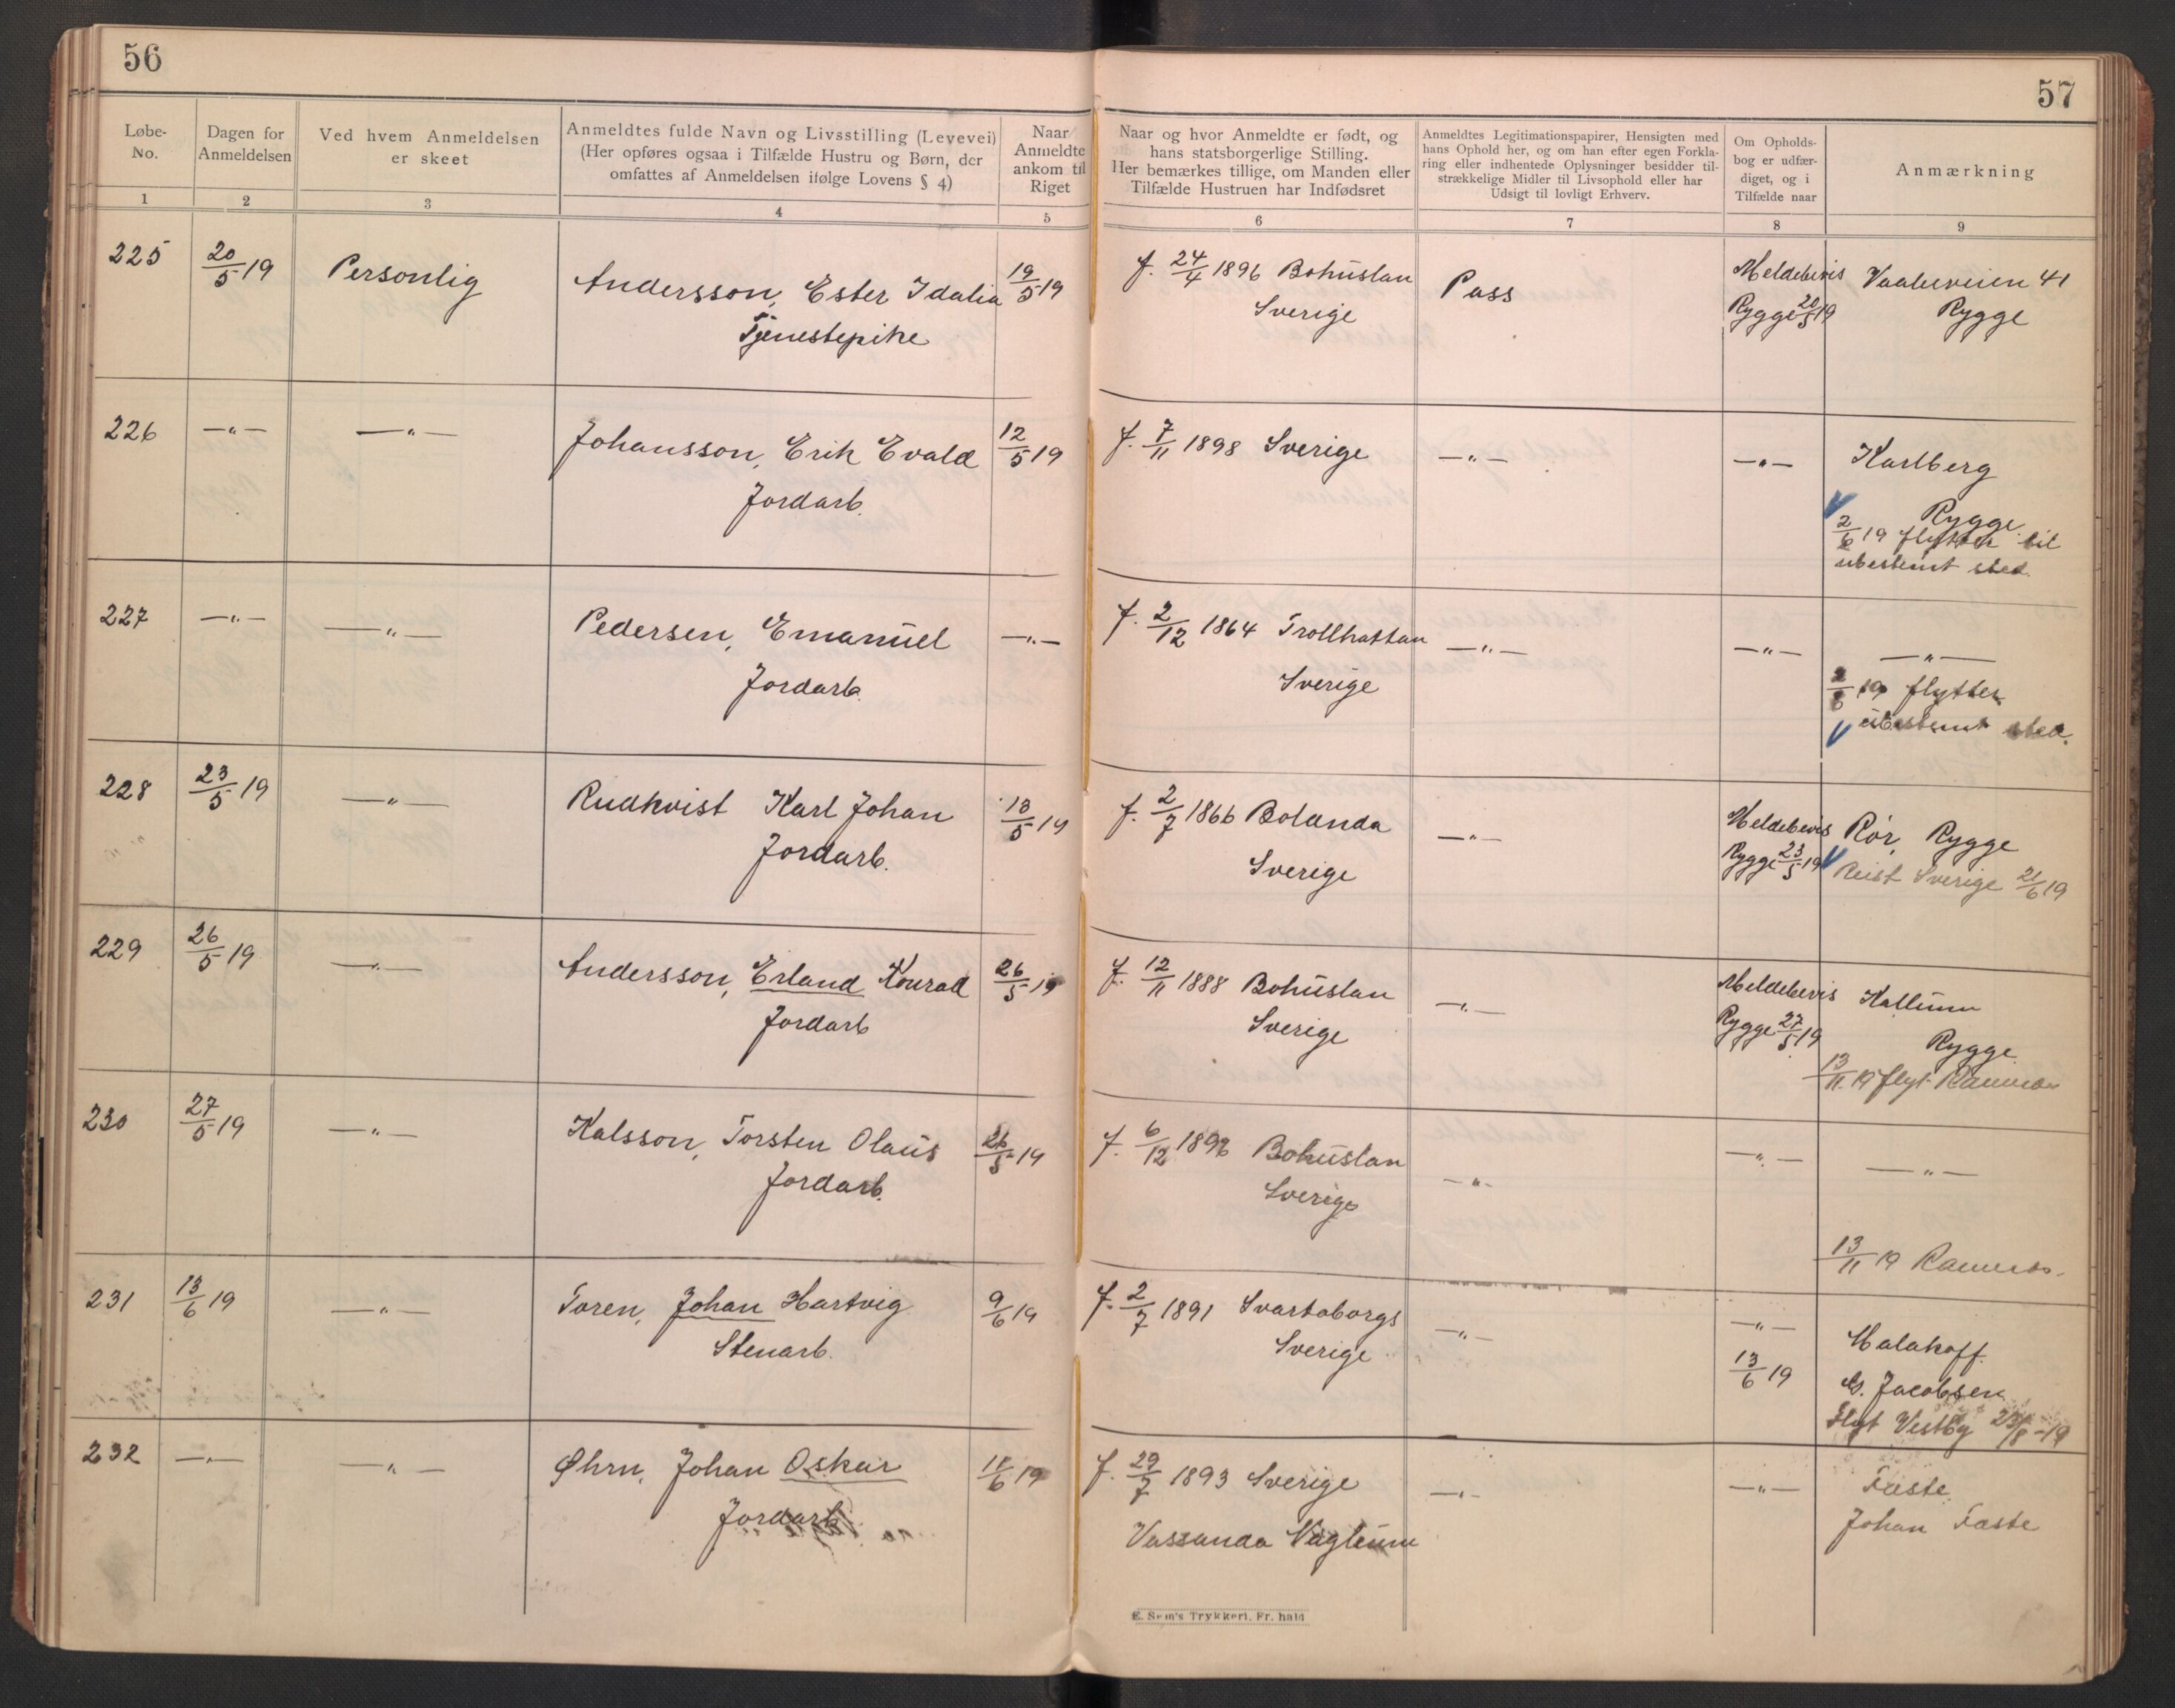 56
57
Løbe-No.
Dagen for Anmeldelsen
Ved hvem Anmeldelsen er skeet
Anmeldtes fulde Navn og Livsstilling (Levevei)
(Her opføres ogsaa i Tilfælde Hustru og Børn, der
omfattes af Anmeldelsen ifølge Lovens § 4)
Naar Anmeldte ankom til Riget
Naar og hvor Anmeldte er født, og
hans statsborgerlige Stilling.
Her bemærkes tillige, om Manden eller
Tilfælde Hustruen har Indfødsret
Anmeldtes Legitimationspapirer, Hensigten med
hans Ophold her, og om han efter egen Forkla-
ring eller indhentede Oplysninger besidder til-
strækkelige Midler til Livsophold eller har
Udsigt til lovligt Erhverv.
Om Opholds-
bog er udfær-
diget, og i
Tilfælde naar
Anmærkning
1 2 3 4 5 6 7 8 9
225 20/5 19 Personlig Andersson, Ester Idalia 19/5 19 f. 24/4 1896 Bohüslan Pass Meldebevis Vaalerveien 41
Tjenestepike Sverige Rygge 20/5 19 Rygge
226 —"— —"— Johansson, Erik Evald 12/5 19 f. 7/11 1898 Sverige —"— —"— Karlberg
Jordarb. Rygge
2/6 19 flyttet til
ubestemt sted.
227 —"— —"— Pedersen, Emanüel —"— f. 2/12 1864 Trollhattan —"— —"— —"—
Jordarb. Sverige
2/6 19 flyttet
ubestemt sted.
228 23/5 19 —"— Rudkvist Karl Johan 13/5 19 f. 2/7 1866 Bolanda —"— Meldebevis Rør, Rygge
Jordarb. Sverige Rygge 23/5 19 Reist Sverige 21/6 19
229 26/5 19 —"— Andersson, Erland Konrad 26/5 19 f. 12/11 1888 Bohüslan —"— Meldebevis Kallüm
Jordarb Sverige Rygge 27/5 19 Rygge
13/11 19 flyt
230 27/5 19 —"— Kalsson, Torsten Olaüs 26/5 19 f. 6/12 1896 Bohüslan —"— —"— —"—
Jordarb. Sverige
13/11 19
231 13/6 19 —"— Toren, Johan Hartvig 9/6 19 f. 2/7 1891 Svartaborgs —"— —"— Malakoff.
Stenarb. Sverige 13/6 19 Jacobsen
Flyt Vestby 23/8-19
232 —"— —"— Øhrn, Johan Oskar 11/6 19 f. 29/7 1893 Sverige —"— —"— Faste
Jordarb. Vassanda Nagleüm Johan Faste
E. Sem's Trykkeri, Fr. hald